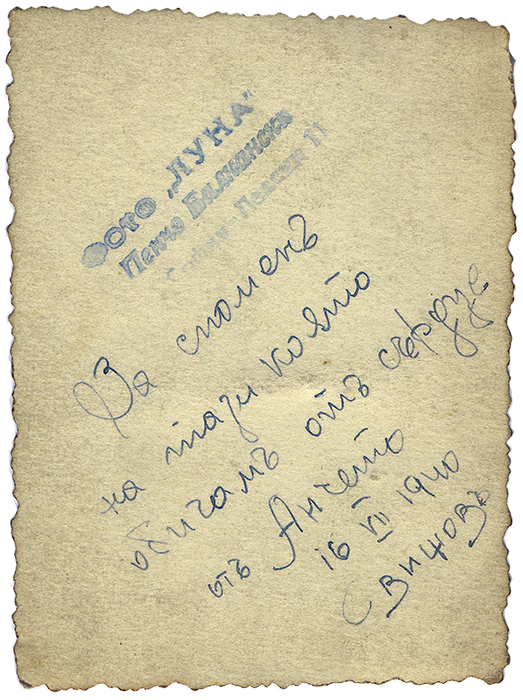 ФОТО „ЛУНА“
Панчо Балчански
За споменъ
на тази която
обичамъ отъ сърдце
отъ Анчето
16 VII 1940
Свищовъ